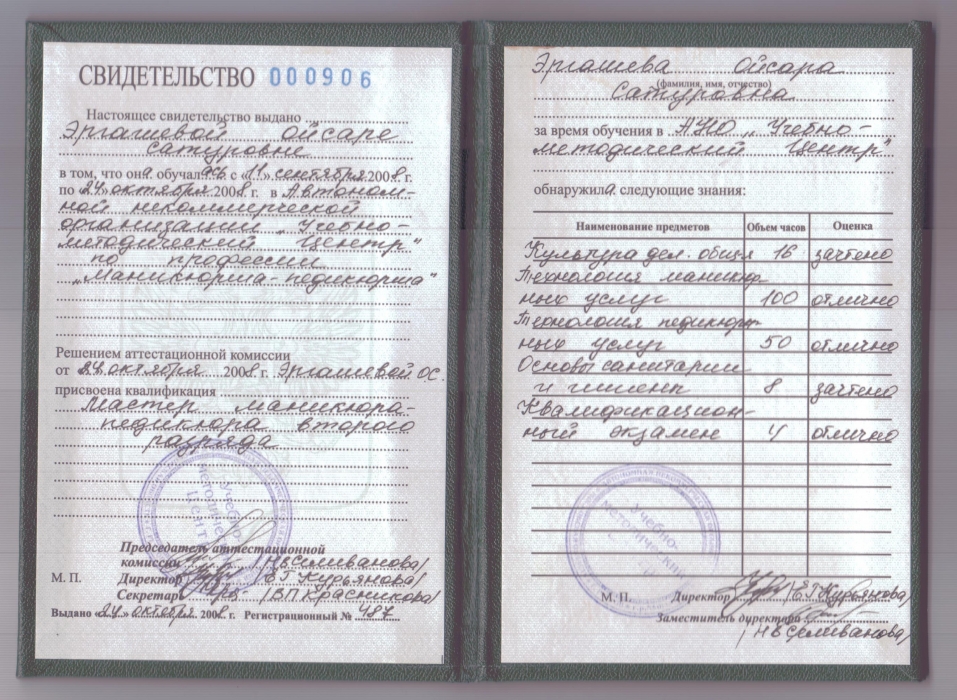 СВИДЕТЕЛЬСТВО 000906
Настоящее свидетельство выдано
Эргашевой Ойсаре
Сатуровне
в том, что она обучалась с «11» сентября 2008 г.
по «24» октября 2008 г. в Автоном-
ной некоммерческой
организации „Учебно-
методический Центр"
по профессии
„Маникюрша-педикюрша"
Решением аттестационной комиссии
от 24 октября 2008 г. Эргашевой О.С.
присвоена квалификация
Мастер маникюра-
педикюра второго
разряда
Учебно-
методический
Центр
Председатель аттестационной
комиссии /Н.В Селиванова/
М. П. Директор /Е.Г Курьянова/
Секретарь /В.П Красникова/
Выдано «24» октября 2008 г. Регистрационный № 487
Эргашева Ойсара
(фамилия, имя, отчество)
Сатуровна
за время обучения в АНО „Учебно-
методический Центр"
обнаружила следующие знания:
Наименование предметов Объем часов Оценка
Культура дел. общен 16 зачтено
Технология маникюр-
ных услуг 100 отлично
Технология педикюр-
ных услуг 50 отлично
Основы санитарии
и гигиены 8 зачтено
Квалификацион-
ный экзамен 4 отлично
Учебно-
методический
М. П. Директор /Е.Г Курьянова/
Заместитель директора
/Н В Селиванова/